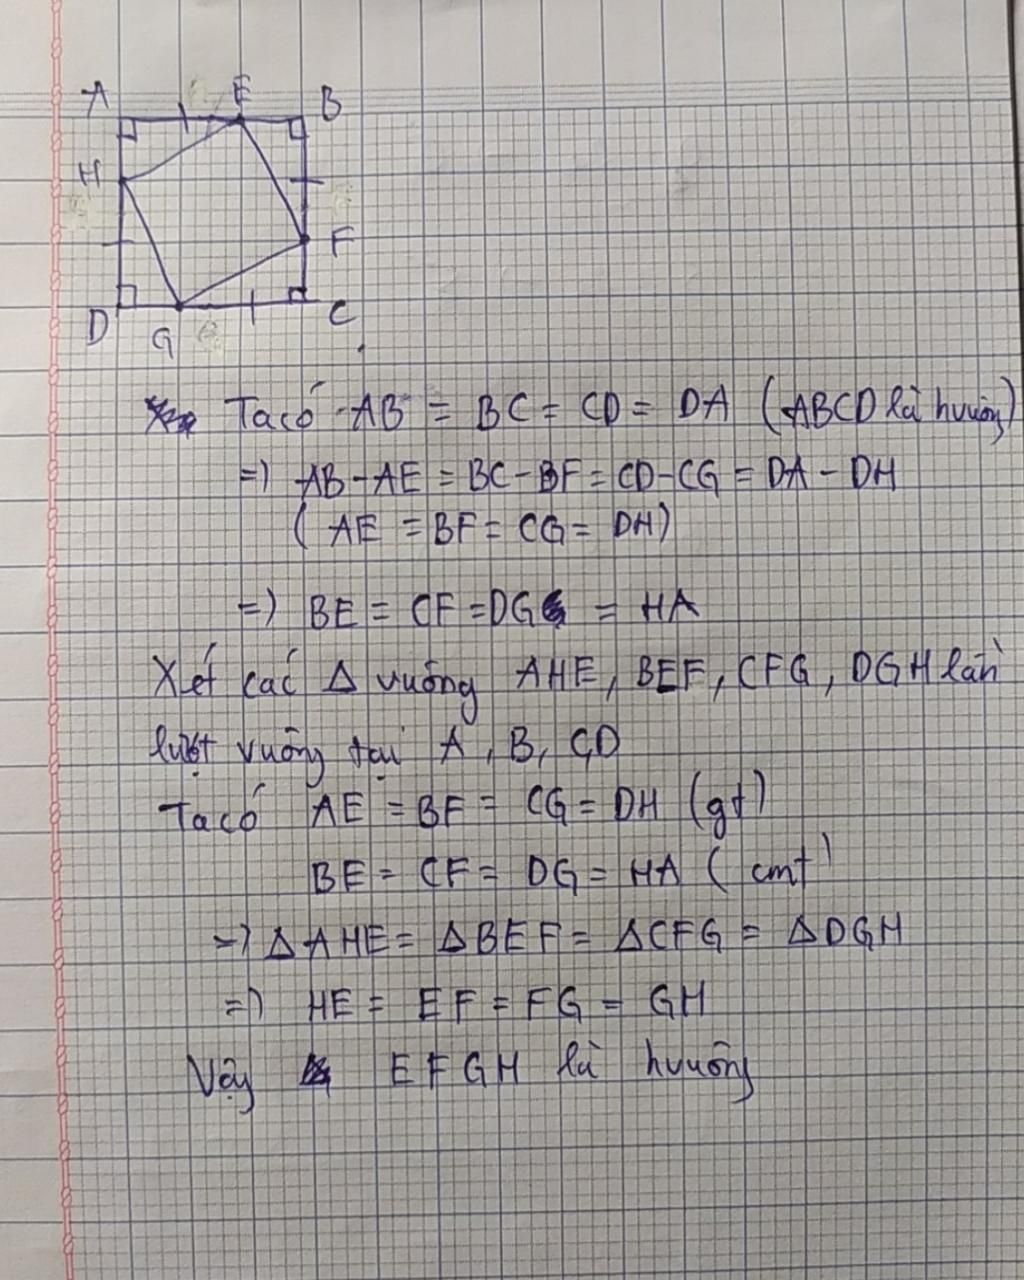 A E B
H
F
D G C
Ta có AB = BC = CD = DA (ABCD là hvuông)
=) AB-AE = BC-BF = CD-CG = DA-DH
( AE = BF = CG = DH)
=) BE = CF = DG = HA
Xét các Δ vuông AHE, BEF, CFG, DGH lần
lượt vuông tại A, B, C, D
Ta có AE = BF = CG = DH (gt)
BE = CF = DG = HA ( cmt )
=) Δ AHE = Δ BEF = Δ CFG = Δ DGH
=) HE = EF = FG = GH
Vậy EFGH là hvuông